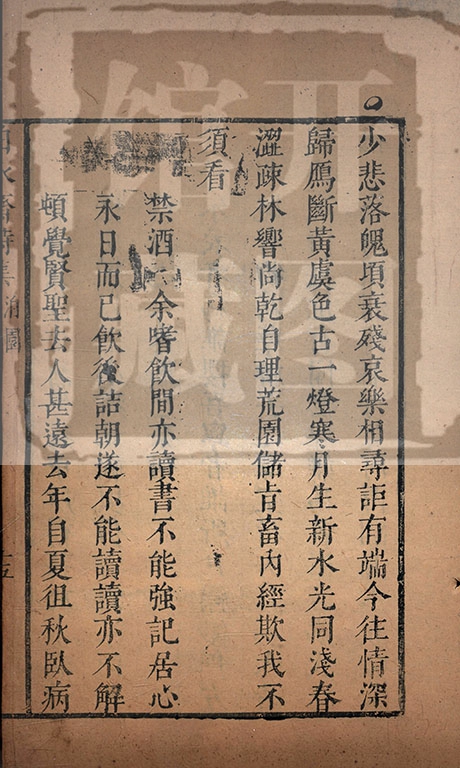 少悲落魄頃衰殘哀樂相尋詎有端今往情深
歸鴈斷黃虞色古一燈寒月生新水光同淺春
澀疎林響尚乾自理荒園儲旨畜內經欺我不
須看
禁酒 余嗜飲間亦讀書不能強記居心
永日而已飲後詰朝遂不能讀讀亦不解
頓覺賢聖去人甚遠去年自夏徂秋臥病